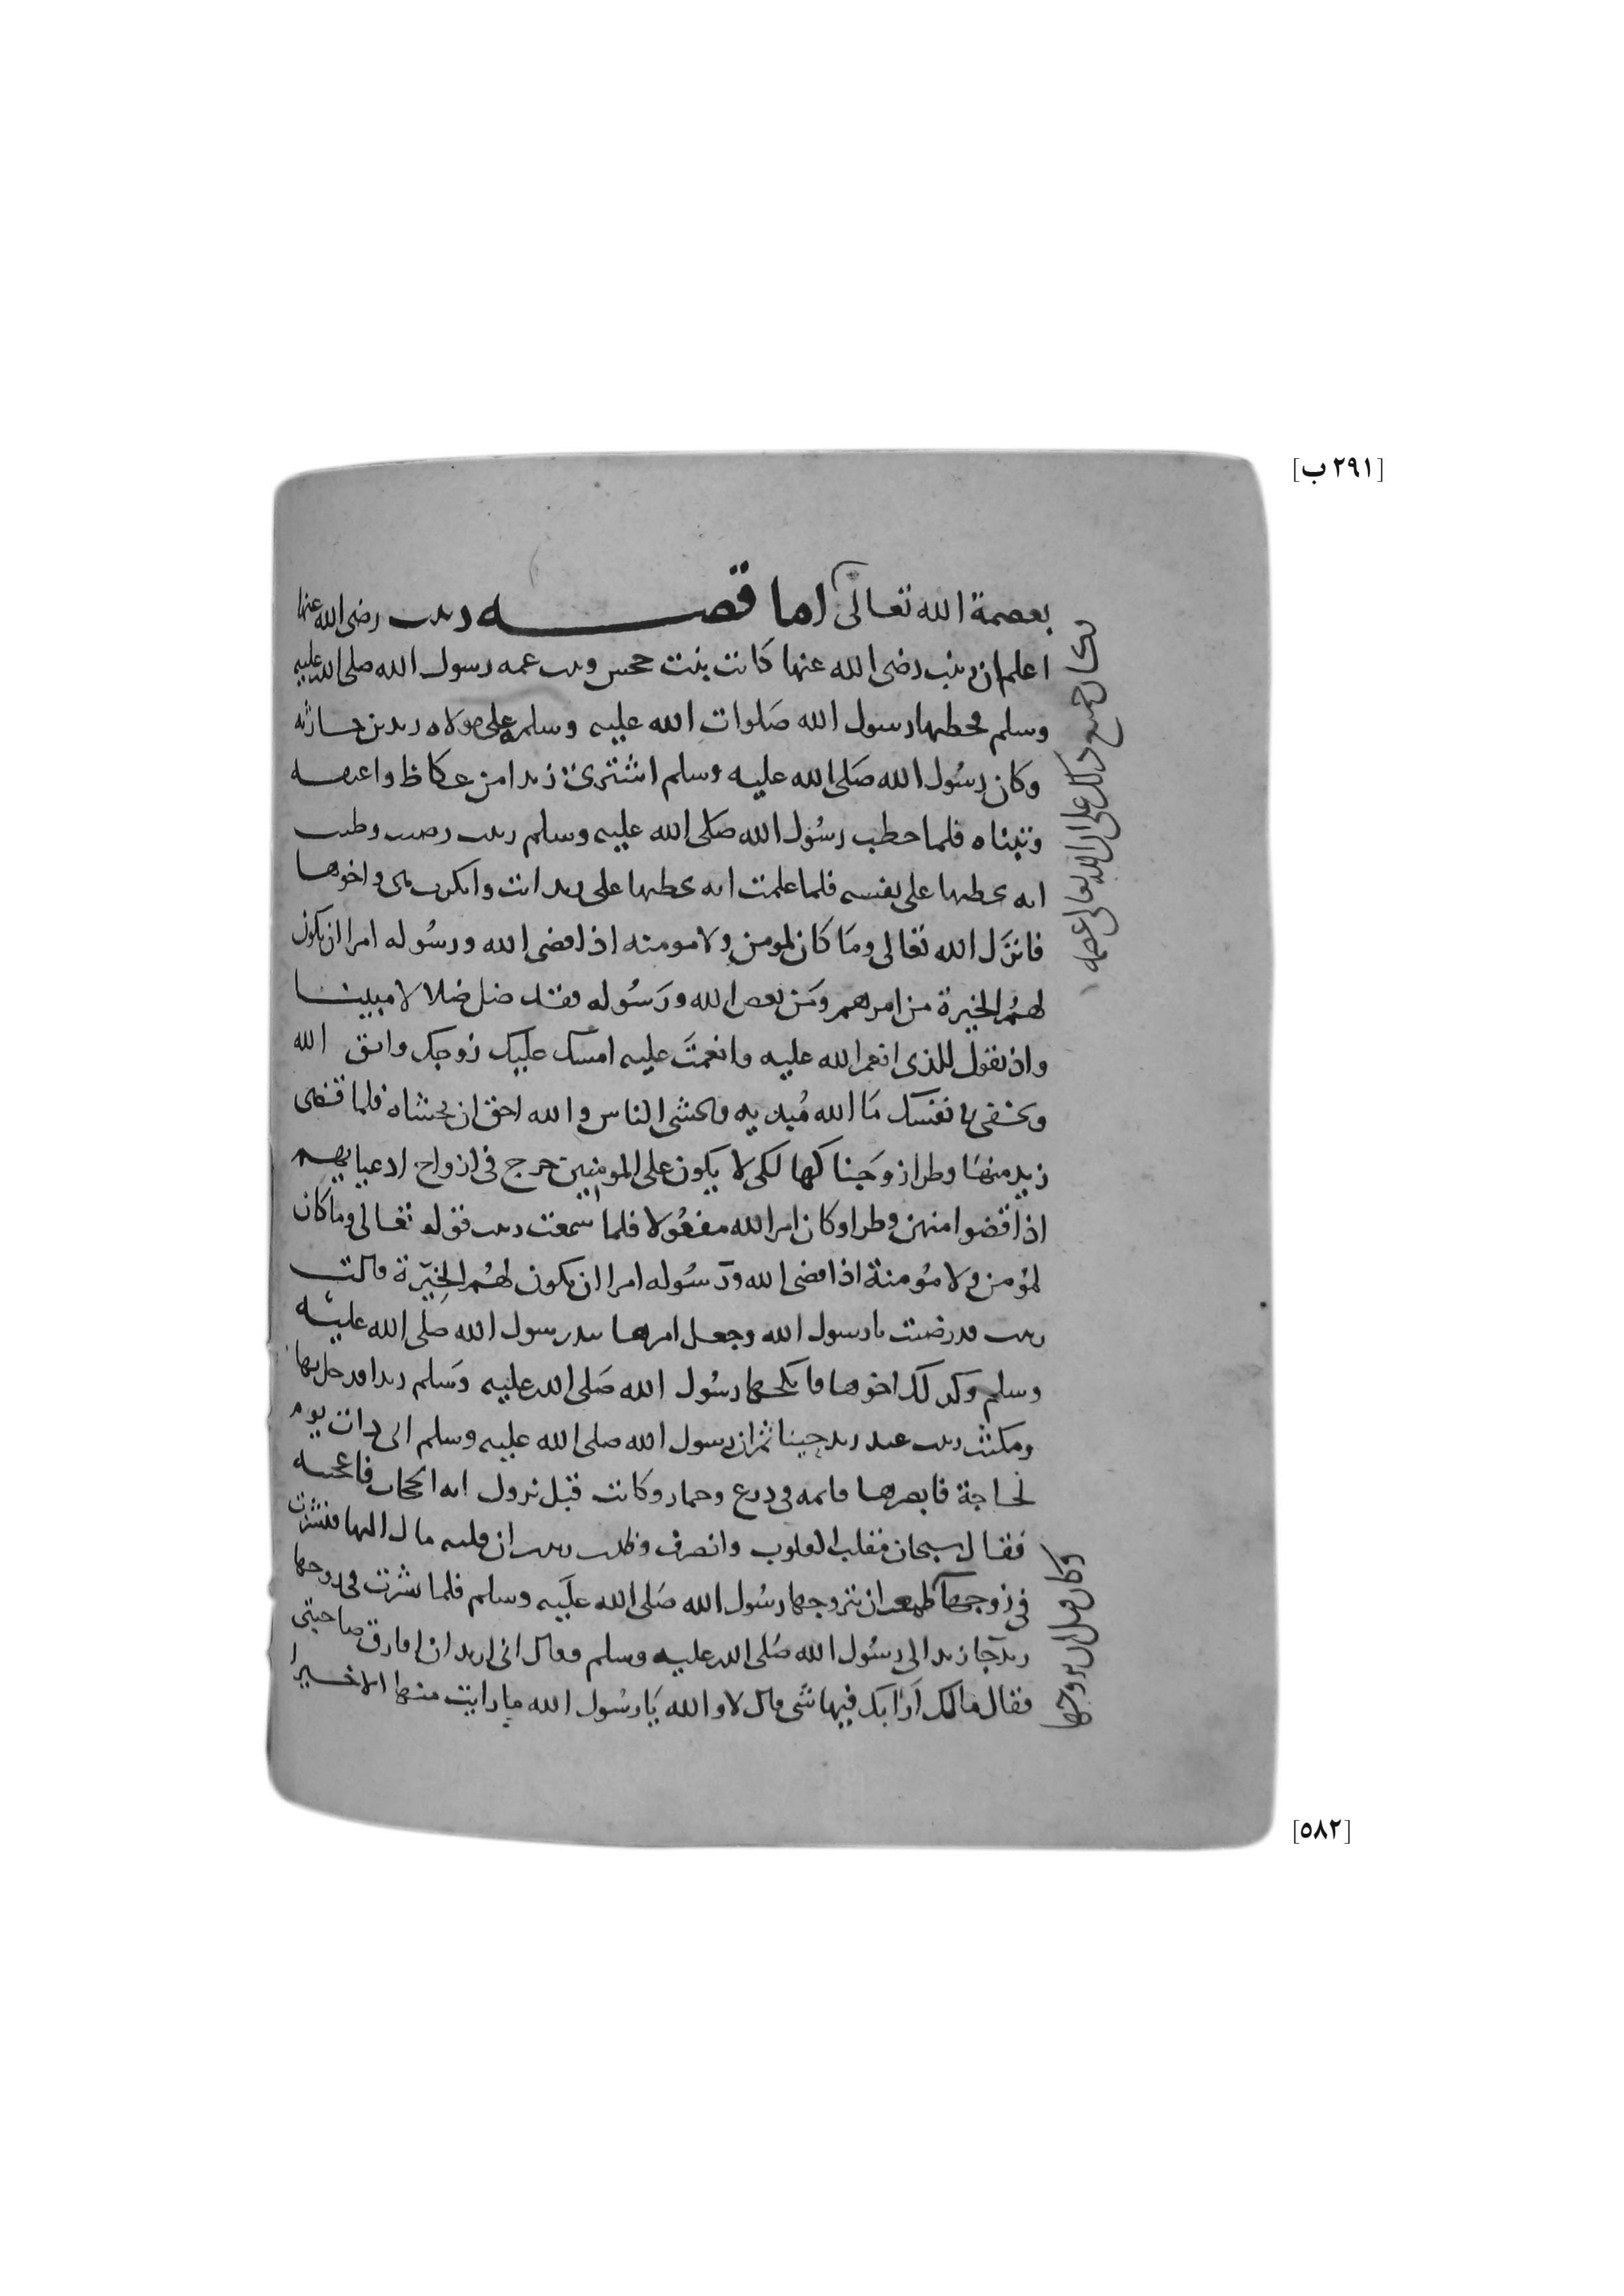 [٢٩١ ب]
بعصمة الله تعالى اما قصه زينب رضى الله عنها
اعلم ان زينب رضى الله عنها كانت بنت جحش وبنت عمه رسول الله صلى الله عليه
وسلم فخطبها رسول الله صلوات الله عليه وسلم على مولاه زيد بن حارثه
وكان رسول الله صلى الله عليه وسلم اشترى زيدا من عكاظ واعتقه
وتبناه فلما خطب رسول الله صلى الله عليه وسلم زينب رضيت وظنت
انه يخطبها على نفسه فلما علمت انه يخطبها على زيد ابت وانكرت هى واخوها
فانزل الله تعالى وما كان لمومن ولا مومنه اذا قضى الله ورسوله امرا ان يكون
لهم الخيرة من امرهم ومن يعص الله ورسوله فقد ضل ضلالا مبينا
واذ تقول للذى انعم الله عليه وانعمت عليه امسك عليك زوجك واتق الله
وتخفى فى نفسك ما الله مبديه وتخشى الناس والله احق ان تخشاه فلما قضى
زيد منها وطرا زوجناكها لكى لا يكون على المومنين حرج فى ازواج ادعيايهم
اذا قضوا منهن وطرا وكان امر الله مفعولا فلما سمعت زينب قوله تعالى وما كان
لمؤمن ولا مؤمنة اذا قضى الله ورسوله امرا ان يكون لهم الخيرة قالت
زينب قد رضيت يا رسول الله وجعل امرها بيد رسول الله صلى الله عليه
وسلم وكذلك اخوها فانكحها رسول الله صلى الله عليه وسلم زيدا فدخل بها
ومكثت زينب عند زيد حينا ثم ان رسول الله صلى الله عليه وسلم اتى ذات يوم
لحاجة فابصرها قائمه فى درع وخمار وكانت قبل نزول ايه الحجاب فاعجبته
فقال سبحان مقلب القلوب وانصرف وظنت زينب ان قلبه مال اليها فنشزت
فى زوجها طمعا ان يتزوجها رسول الله صلى الله عليه وسلم فلما نشزت فى زوجها
زيد جا زيد الى رسول الله صلى الله عليه وسلم وقال انى اريد ان افارق صاحبتى
فقال مالك ارابك فيها شى قال لا والله يا رسول الله ما رايت منها الا خيرا
جميع ذلك على الله تعالى
وكان قبل ان يزوجها
[٥٨٢]